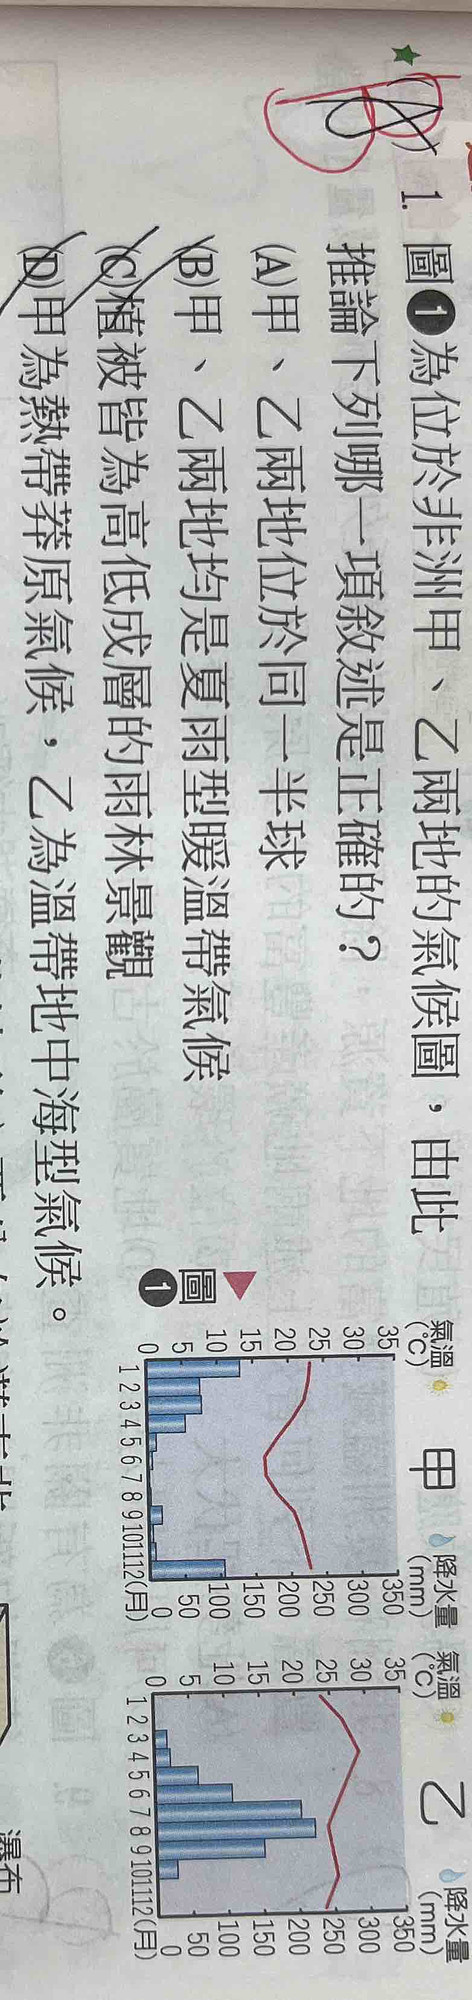 B
A
) 1. 圖❶為位於非洲甲、乙兩地的氣候圖，由此
推論下列哪一項敘述是正確的？
(A)甲、乙兩地位於同一半球
(B)甲、乙兩地均是夏雨型暖溫帶氣候
(C)植被皆為高低成層的雨林景觀
(D)甲為熱帶莽原氣候，乙為溫帶地中海型氣候。
圖❶
氣溫(℃) 甲 降水量(mm)
35 350
30 300
25 250
20 200
15 150
10 100
5 50
0 0
1 2 3 4 5 6 7 8 9 10 11 12(月)
氣溫(℃) 乙 降水量(mm)
35 350
30 300
25 250
20 200
15 150
10 100
5 50
0 0
1 2 3 4 5 6 7 8 9 10 11 12(月)
瀑布